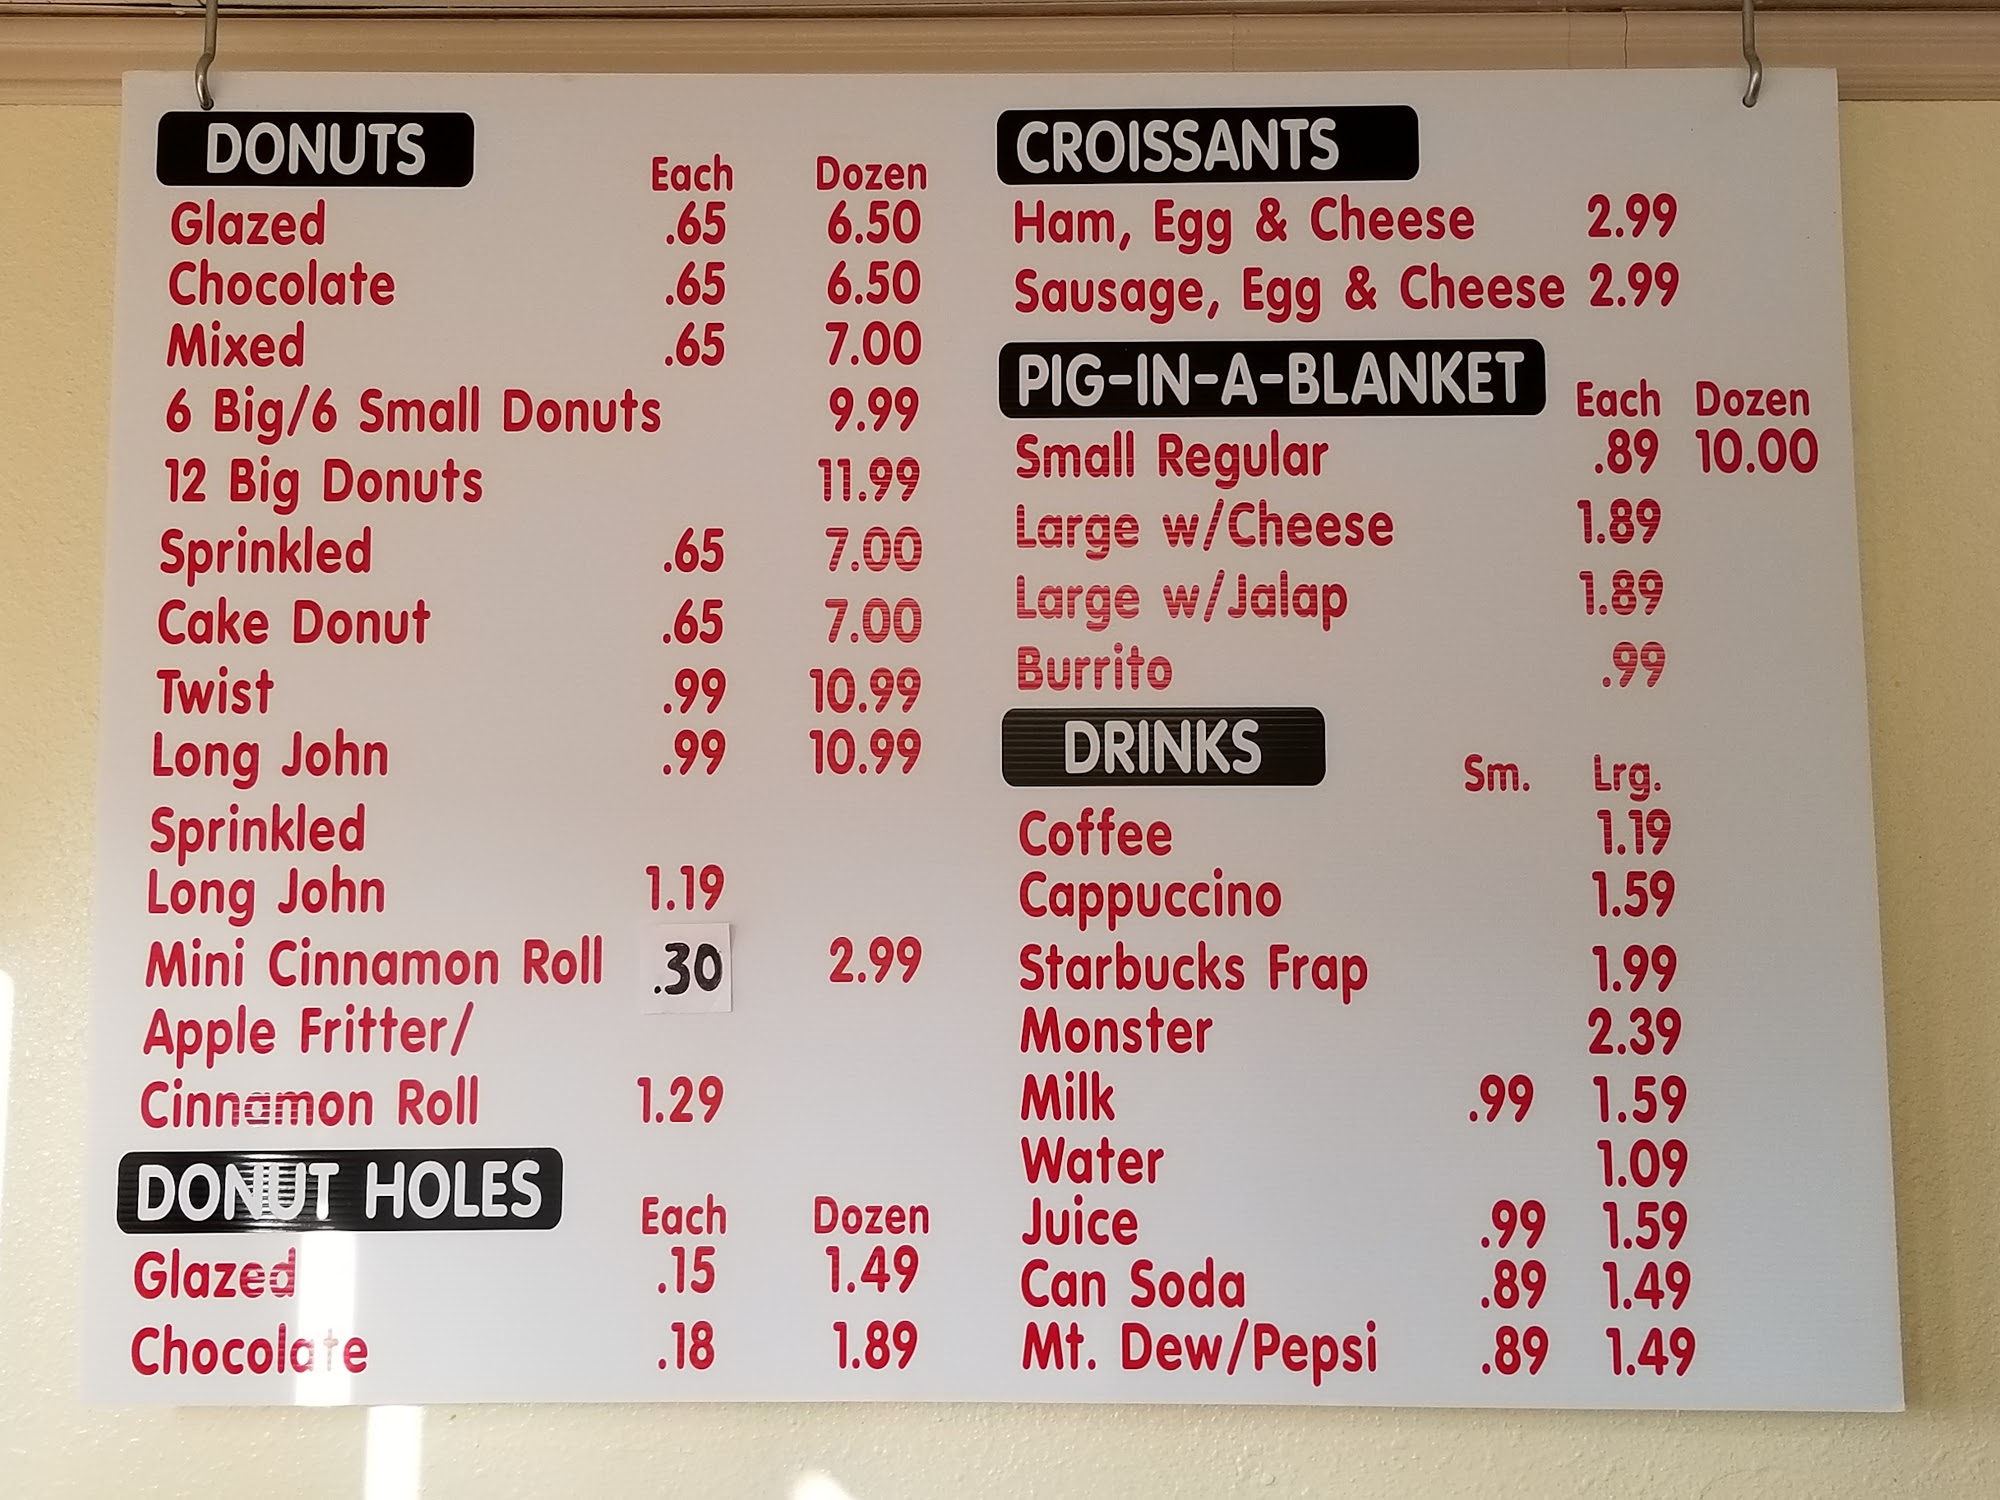 DONUTS
Each Dozen
Glazed .65 6.50
Chocolate .65 6.50
Mixed .65 7.00
6 Big/6 Small Donuts 9.99
12 Big Donuts 11.99
Sprinkled .65 7.00
Cake Donut .65 7.00
Twist .99 10.99
Long John .99 10.99
Sprinkled
Long John 1.19
Mini Cinnamon Roll .30 2.99
Apple Fritter/
Cinnamon Roll 1.29
DONUT HOLES
Each Dozen
Glazed .15 1.49
Chocolate .18 1.89
CROISSANTS
Ham, Egg & Cheese 2.99
Sausage, Egg & Cheese 2.99
PIG-IN-A-BLANKET
Each Dozen
Small Regular .89 10.00
Large w/Cheese 1.89
Large w/Jalap 1.89
Burrito .99
DRINKS
Sm. Lrg.
Coffee 1.19
Cappuccino 1.59
Starbucks Frap 1.99
Monster 2.39
Milk .99 1.59
Water 1.09
Juice .99 1.59
Can Soda .89 1.49
Mt. Dew/Pepsi .89 1.49